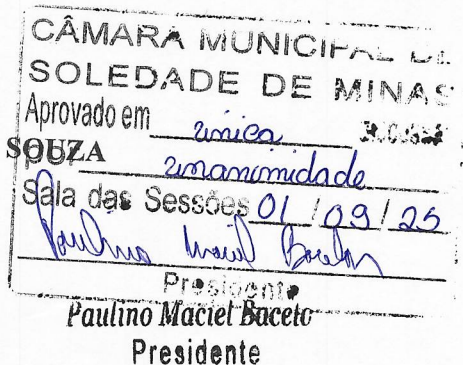 CÂMARA MUNICIPAL DE
SOLEDADE DE MINAS
Aprovado em única
SOUZA
unanimidade
Sala das Sessões 01 / 09 / 25
Presidente
Paulino Maciel Baceto
Presidente